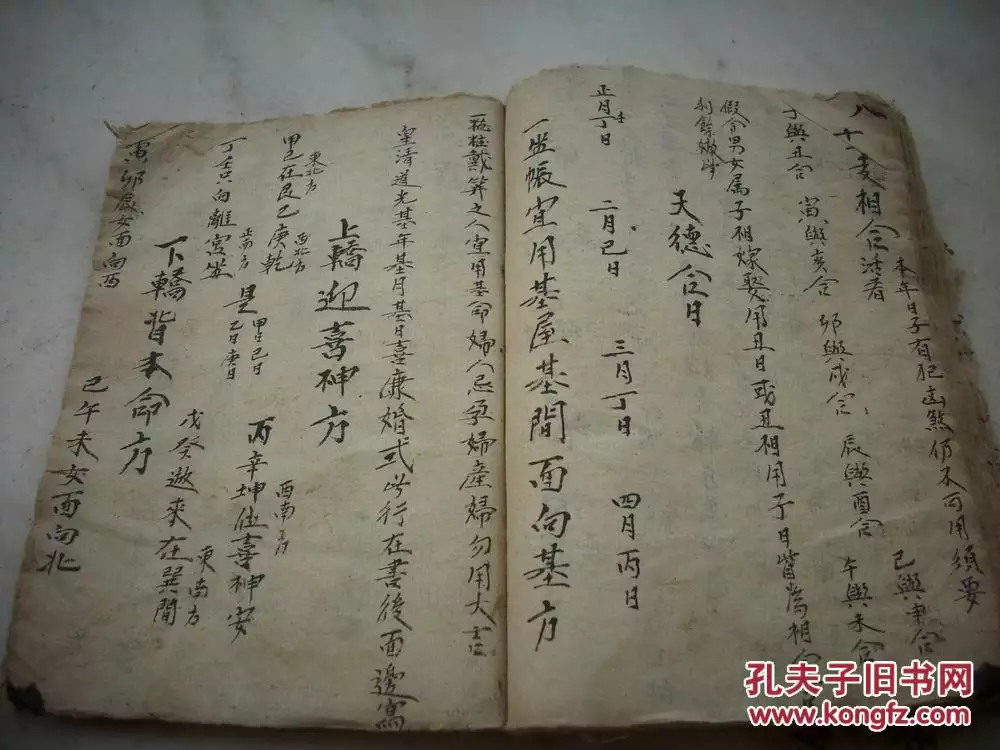 八 十二支相合活看
本年日子有犯凶煞仍不可用須要
子與丑合 寅與亥合 卯與戌合 辰與酉合 午與未合
巳與申合
假令男女属子相嫁娶用丑日或丑相用子日皆為相合
天德合日
正月丁日 二月巳日 三月丁日 四月丙日
一坐帳宜用基屋基間面向基方
一梳粧戴笄之人宜用基命婦人忌孕婦產婦勿用大吉
皇清道光基年基月基日喜庚婚式此行在書後面邊寫
上轎迎喜神方
東北方
甲己在艮乙庚乾
西北方
丙辛坤位喜神安
西南方
丁壬只向離宮坐
正南方
戊癸遊來在巽間
東南方
是
甲日己日
乙日庚日
下轎背本命方
寅卯辰女面向西
巳午未女面向北
孔夫子旧书网
www.kongfz.com